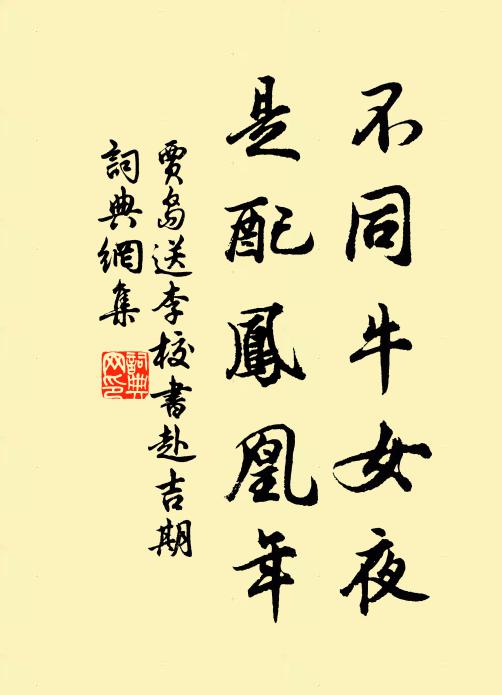 不同牛女夜
是配鳳凰年
賈島送李校書赴吉期
詞典網集
詞典网印